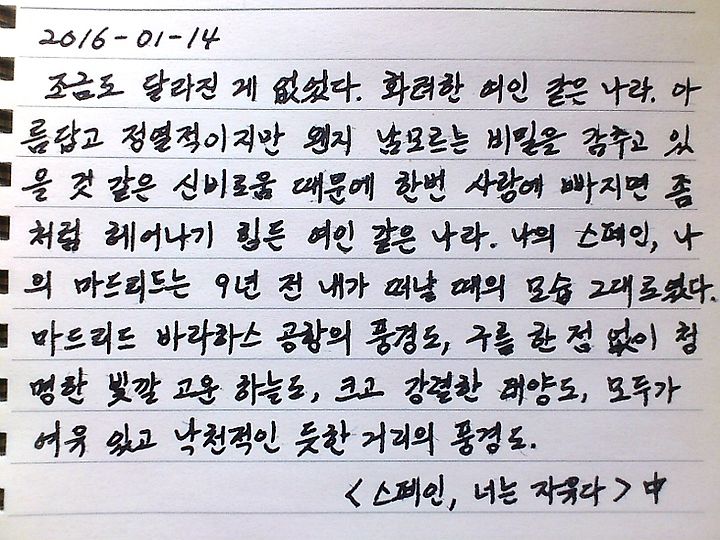 2016-01-14
조금도 달라진 게 없었다. 화려한 여인 같은 나라. 아
름답고 정열적이지만 왠지 남모르는 비밀을 감추고 있
을 것 같은 신비로움 때문에 한번 사랑에 빠지면 좀
처럼 헤어나기 힘든 여인 같은 나라. 나의 스페인, 나
의 마드리드는 9년 전 내가 떠날 때의 모습 그대로였다.
마드리드 바라하스 공항의 풍경도, 구름 한 점 없이 청
명한 빛깔 고운 하늘도, 크고 강렬한 태양도, 모두가
여유 있고 낙천적인 듯한 거리의 풍경도.
<스페인, 너는 자유다> 中